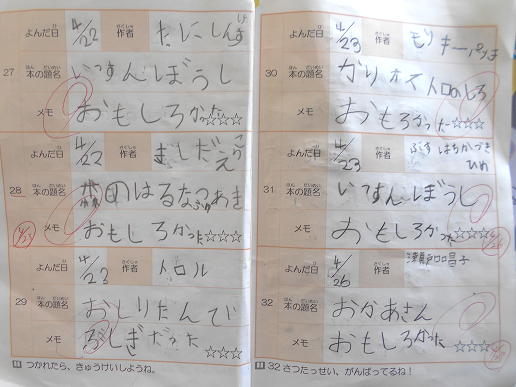 よんだ日 4/22 作者 たにしんすけ
27 本の題名 いっすんぼうし
メモ おもしろかった ☆☆☆
よんだ日 4/22 作者 ましだ
28 本の題名 はるなつふゆあき
メモ おもしろかった ☆☆☆
よんだ日 4/23 作者 トロル
29 本の題名 おしりたんてい
メモ ふしぎだった ☆☆☆
つかれたら、きゅうけいしようね。
よんだ日 4/23 作者 モリキー
30 本の題名
メモ おもろかった ☆☆☆
よんだ日 4/23 作者 ぶす はちかづきひめ
31 本の題名 いっすんぼうし
メモ おもしろかった ☆☆☆
よんだ日 4/26 作者 昌子
32 本の題名 おかあさん
メモ おもしろかった ☆☆☆
32さつたっせい、がんばってるね!